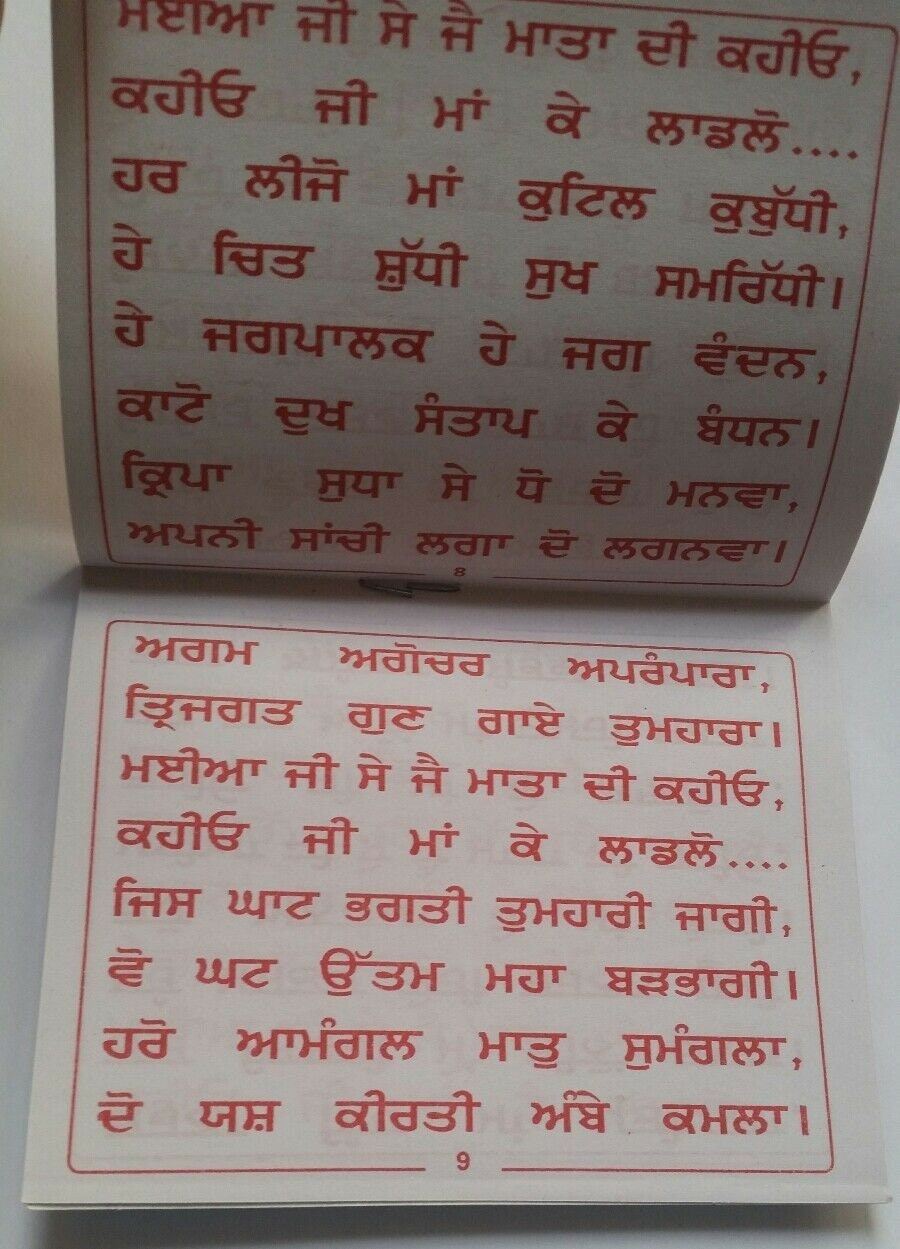 ਮਈਆ ਜੀ ਸੇ ਜੈ ਮਾਤਾ ਦੀ ਕਹੀਓ,
ਕਹੀਓ ਜੀ ਮਾਂ ਕੇ ਲਾਡਲੋ....
ਹਰ ਲੀਜੋ ਮਾਂ ਕੁਟਿਲ ਕੁਬੁੱਧੀ,
ਹੇ ਚਿਤ ਸ਼ੁੱਧੀ ਸੁਖ ਸਮਰਿੱਧੀ।
ਹੇ ਜਗਪਾਲਕ ਹੇ ਜਗ ਵੰਦਨ,
ਕਾਟੋ ਦੁਖ ਸੰਤਾਪ ਕੇ ਬੰਧਨ।
ਕ੍ਰਿਪਾ ਸੁਧਾ ਸੇ ਧੋ ਦੋ ਮਨਵਾ,
ਅਪਨੀ ਸਾਂਚੀ ਲਗਾ ਦੋ ਲਗਨਵਾ।
8
ਅਗਮ ਅਗੋਚਰ ਅਪਰੰਪਾਰਾ,
ਤ੍ਰਿਜਗਤ ਗੁਣ ਗਾਏ ਤੁਮਹਾਰਾ।
ਮਈਆ ਜੀ ਸੇ ਜੈ ਮਾਤਾ ਦੀ ਕਹੀਓ,
ਕਹੀਓ ਜੀ ਮਾਂ ਕੇ ਲਾਡਲੋ....
ਜਿਸ ਘਾਟ ਭਗਤੀ ਤੁਮਹਾਰੀ ਜਾਗੀ,
ਵੋ ਘਟ ਉੱਤਮ ਮਹਾ ਬੜਭਾਗੀ।
ਹਰੋ ਆਮੰਗਲ ਮਾਤੁ ਸੁਮੰਗਲਾ,
ਦੋ ਯਸ਼ ਕੀਰਤੀ ਅੰਬੇ ਕਮਲਾ।
9